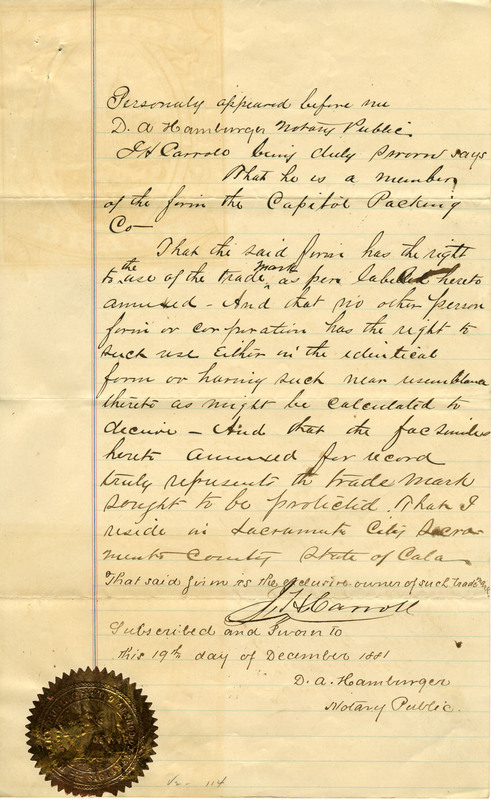 Personaly appeared before me
D. A Hamburger Notary Public
J H Carroll being duly sworn says
That he is a member
of the firm the Capitol Packing
Co—
That the said firm has the right
to the use of the trade mark as per label hereto
annexed - And that no other person
firm or corporation has the right to
such use either in the identical
form or having such near resemblance
thereto as might be calculated to
deceive - And that the facsimiles
hereto annexed for record
truly represents the trade mark
sought to be protected. That I
reside in Sacramento City Sacra-
mento County State of Cala
That said firm is the exclusive owner of such trade mark
J H Carroll
Subscribed and Sworn to
this 19th day of December 1881
D. A. Hamburger
Notary Public.
114